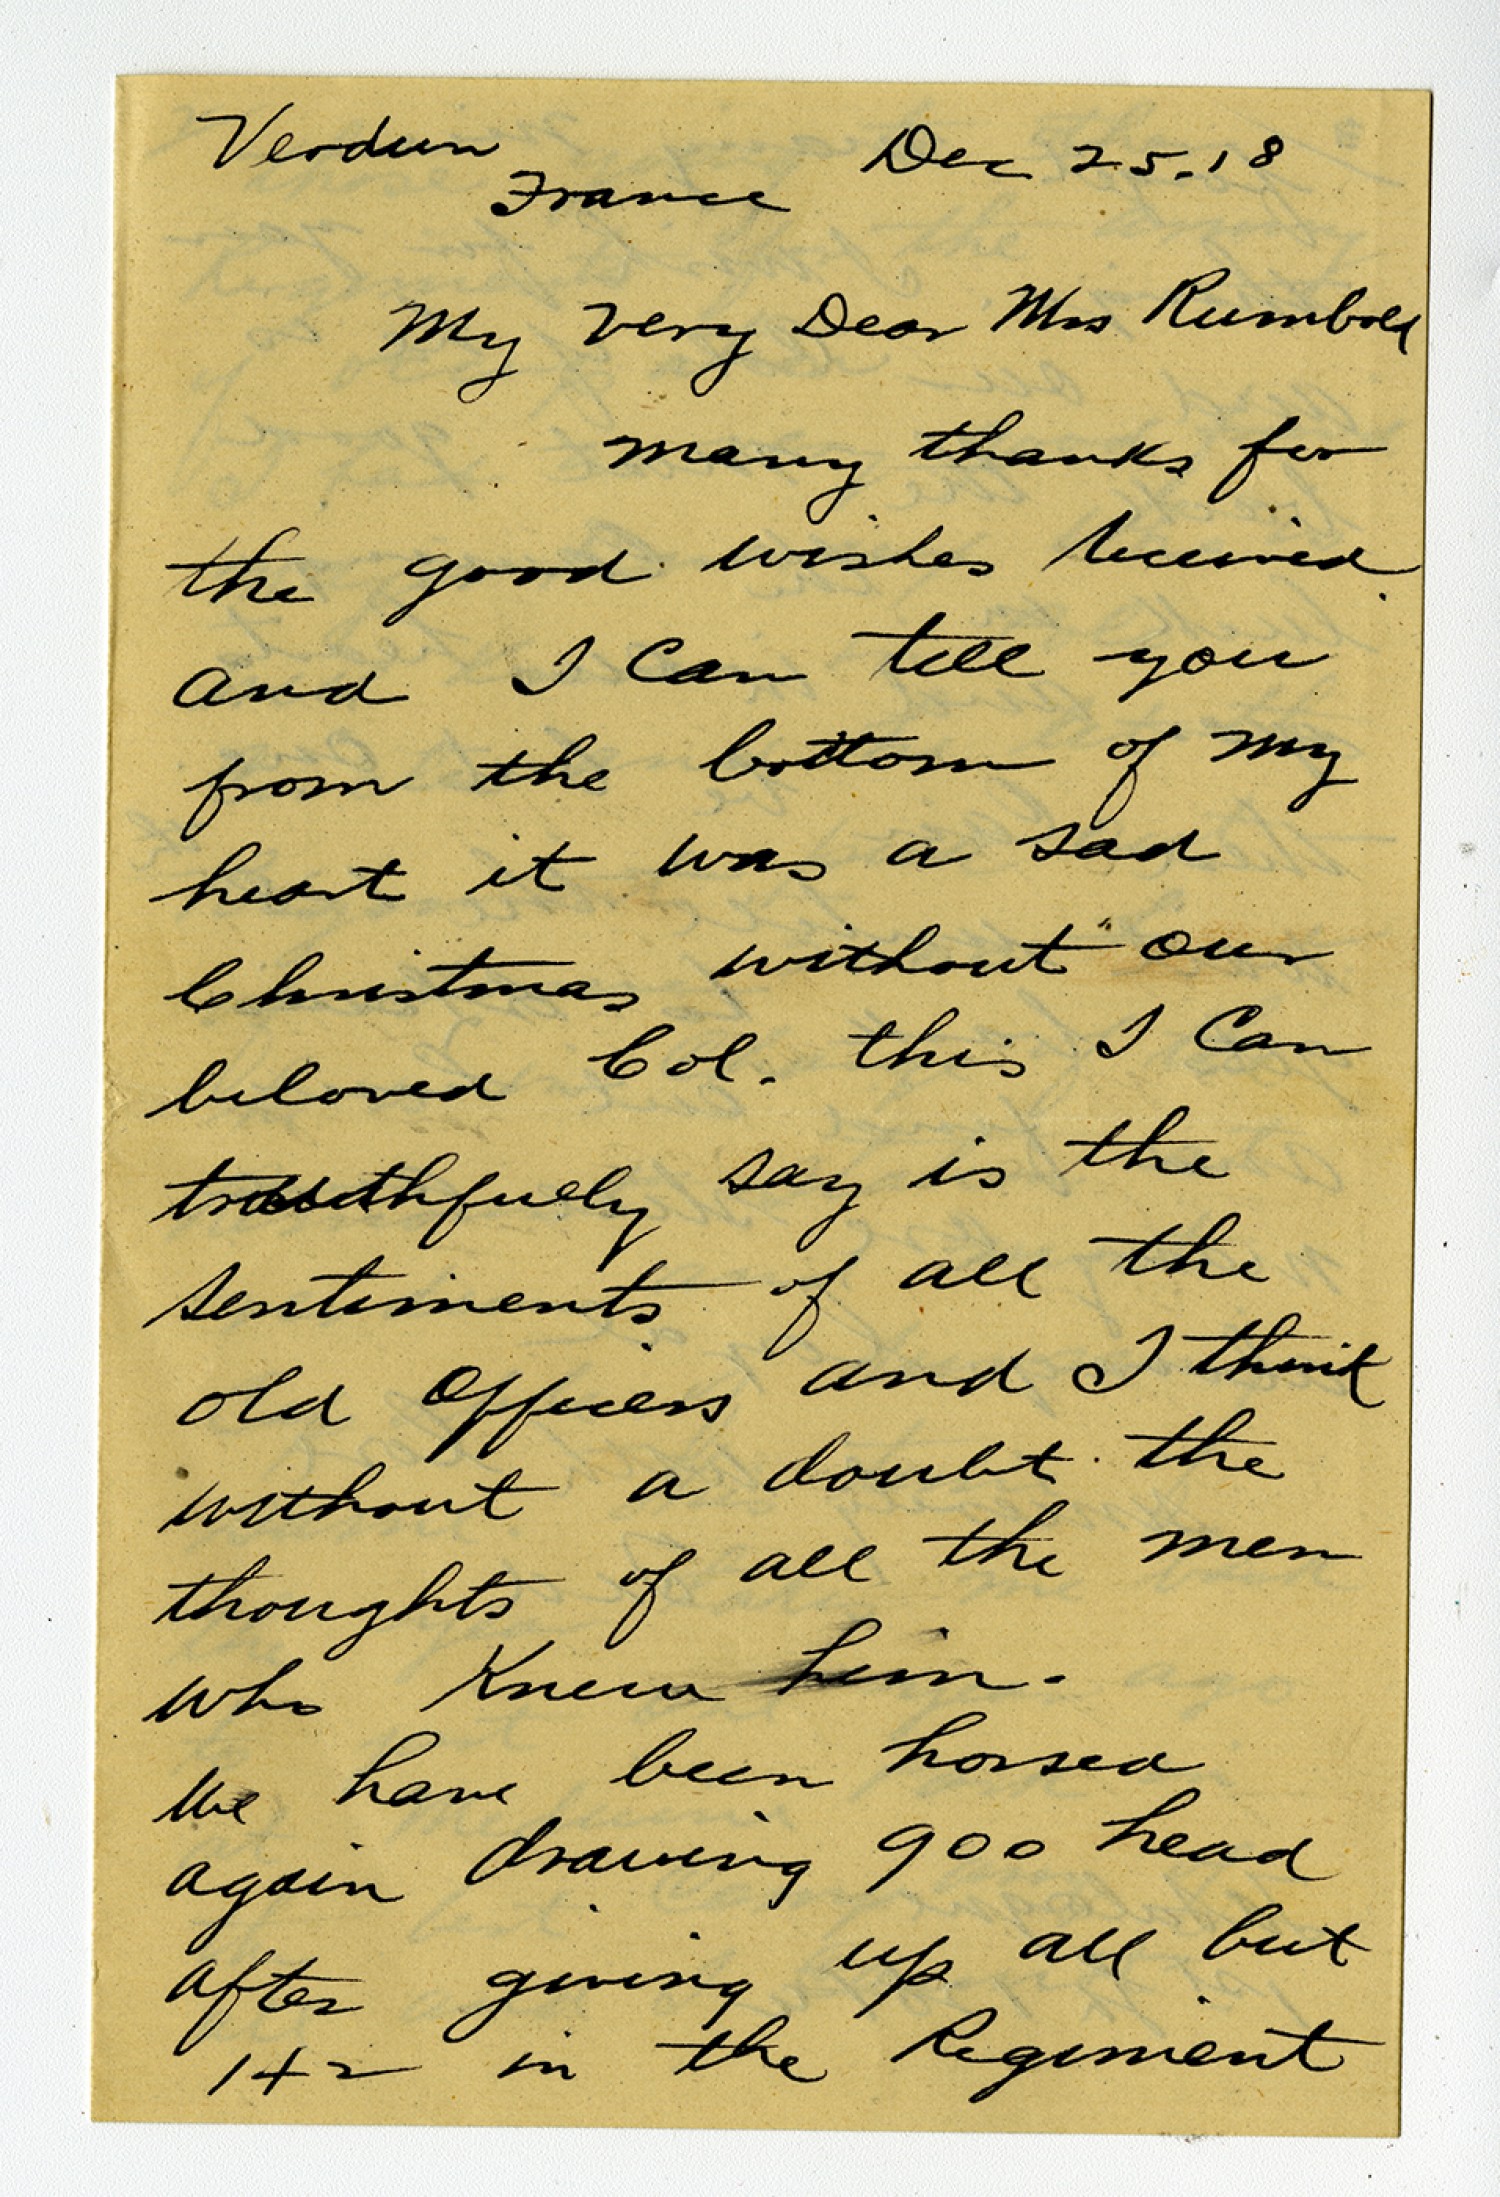 Verdun Dec 25.18
France
My Very Dear Mrs Rumbold
many thanks for
the good wishes received.
and I Can tell you
from the bottom of my
heart it was a sad
Christmas without our
beloved Col. this I Can
truthfully say is the
sentiments of all the
old officers and I think
without a doubt the
thoughts of all the men
who Knew him.
We have been horsed
again drawing 900 head
after giving up all but
142 in the Regiment